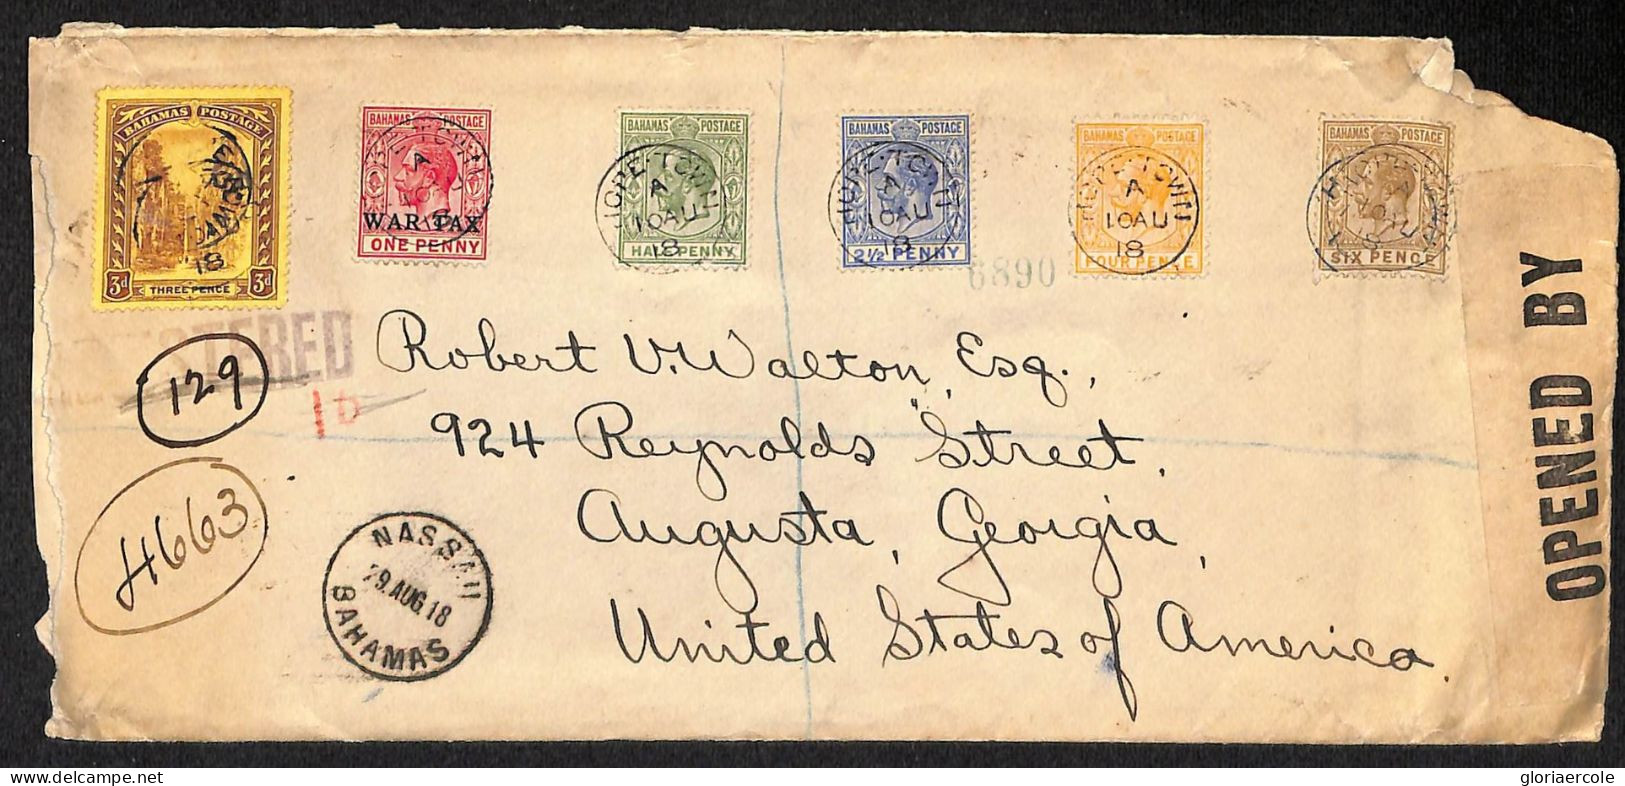 BAHAMAS POSTAGE
3d THREE PENCE 3d
BAHAMAS POSTAGE
WAR TAX
ONE PENNY
BAHAMAS POSTAGE
HALF PENNY
BAHAMAS POSTAGE
2½ PENNY
BAHAMAS POSTAGE
FOUR PENCE
BAHAMAS POSTAGE
SIX PENCE
HOPE-TOWN
A
10 AU
18
HOPE-TOWN
A
10 AU
18
HOPE-TOWN
A
10 AU
18
6890
STERED
129
1D
H663
Robert V. Walton, Esq.,
924 "Reynolds" Street,
Augusta, Georgia,
United States of America.
NASSAU
29 AUG 18
BAHAMAS
OPENED BY
gloriaercole